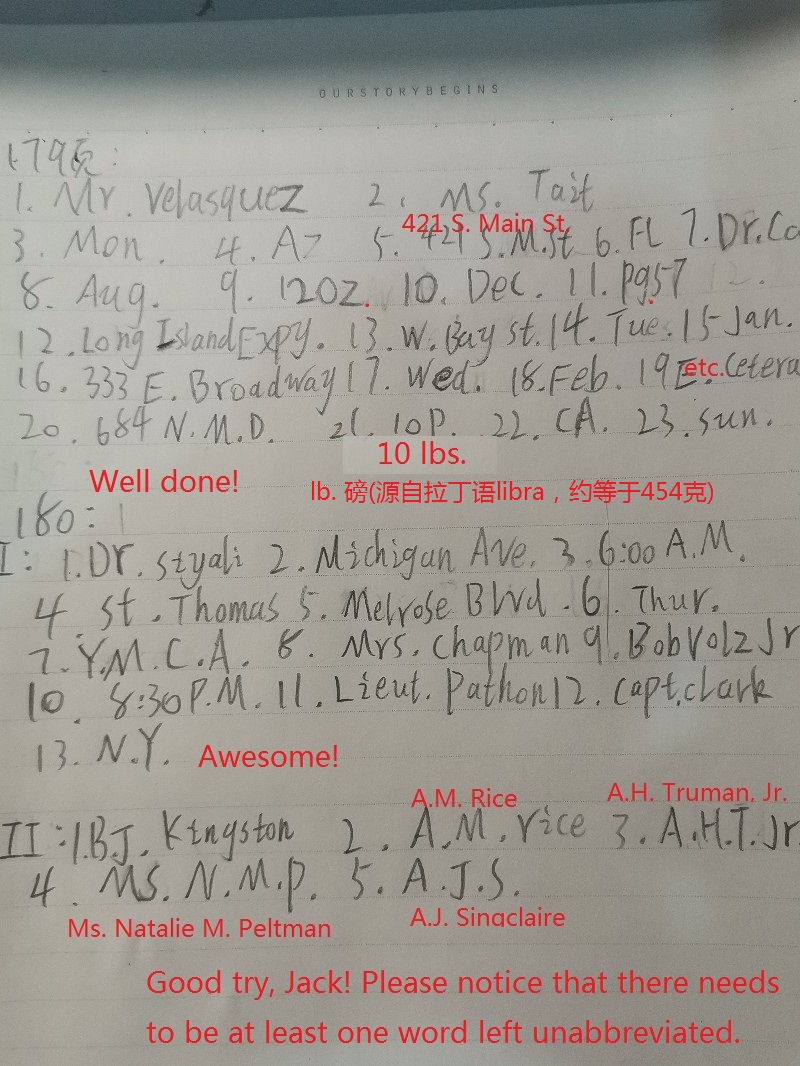 OURSTORYBEGINS
179页:
1. Mr. Velasquez 2. Ms. Tait
421 S. Main St.
3. Mon. 4. AZ 5. 421 S. M. St 6. FL 7. Dr. Co
8. Aug. 9. 12 OZ. 10. Dec. 11. Pg. 57 12.
12. Long Island Expy. 13. W. Bay St. 14. Tue. 15 Jan.
16. 333 E. Broadway 17. Wed. 18. Feb. 19 E. etc. Cetera
20. 684 N. M. D. 21. 10 P. 22. CA. 23. Sun.
10 lbs.
Well done!
lb. 磅(源自拉丁语libra，约等于454克)
180:
I: 1. Dr. Styali 2. Michigan Ave. 3. 6:00 A.M.
4. St. Thomas 5. Melrose Blvd. 6. Thur.
7. Y.M.C.A. 8. Mrs. Chapman 9. Bob Volz Jr
10. 8:30 P.M. 11. Lieut. Pathon 12. Capt. Clark
13. N.Y. Awesome!
A.M. Rice A.H. Truman, Jr.
II: 1. B.J. Kingston 2. A.M. rice 3. A.H.T. Jr
4. Ms. N.M.P. 5. A.J.S.
Ms. Natalie M. Peltman A.J. Singclaire
Good try, Jack! Please notice that there needs
to be at least one word left unabbreviated.